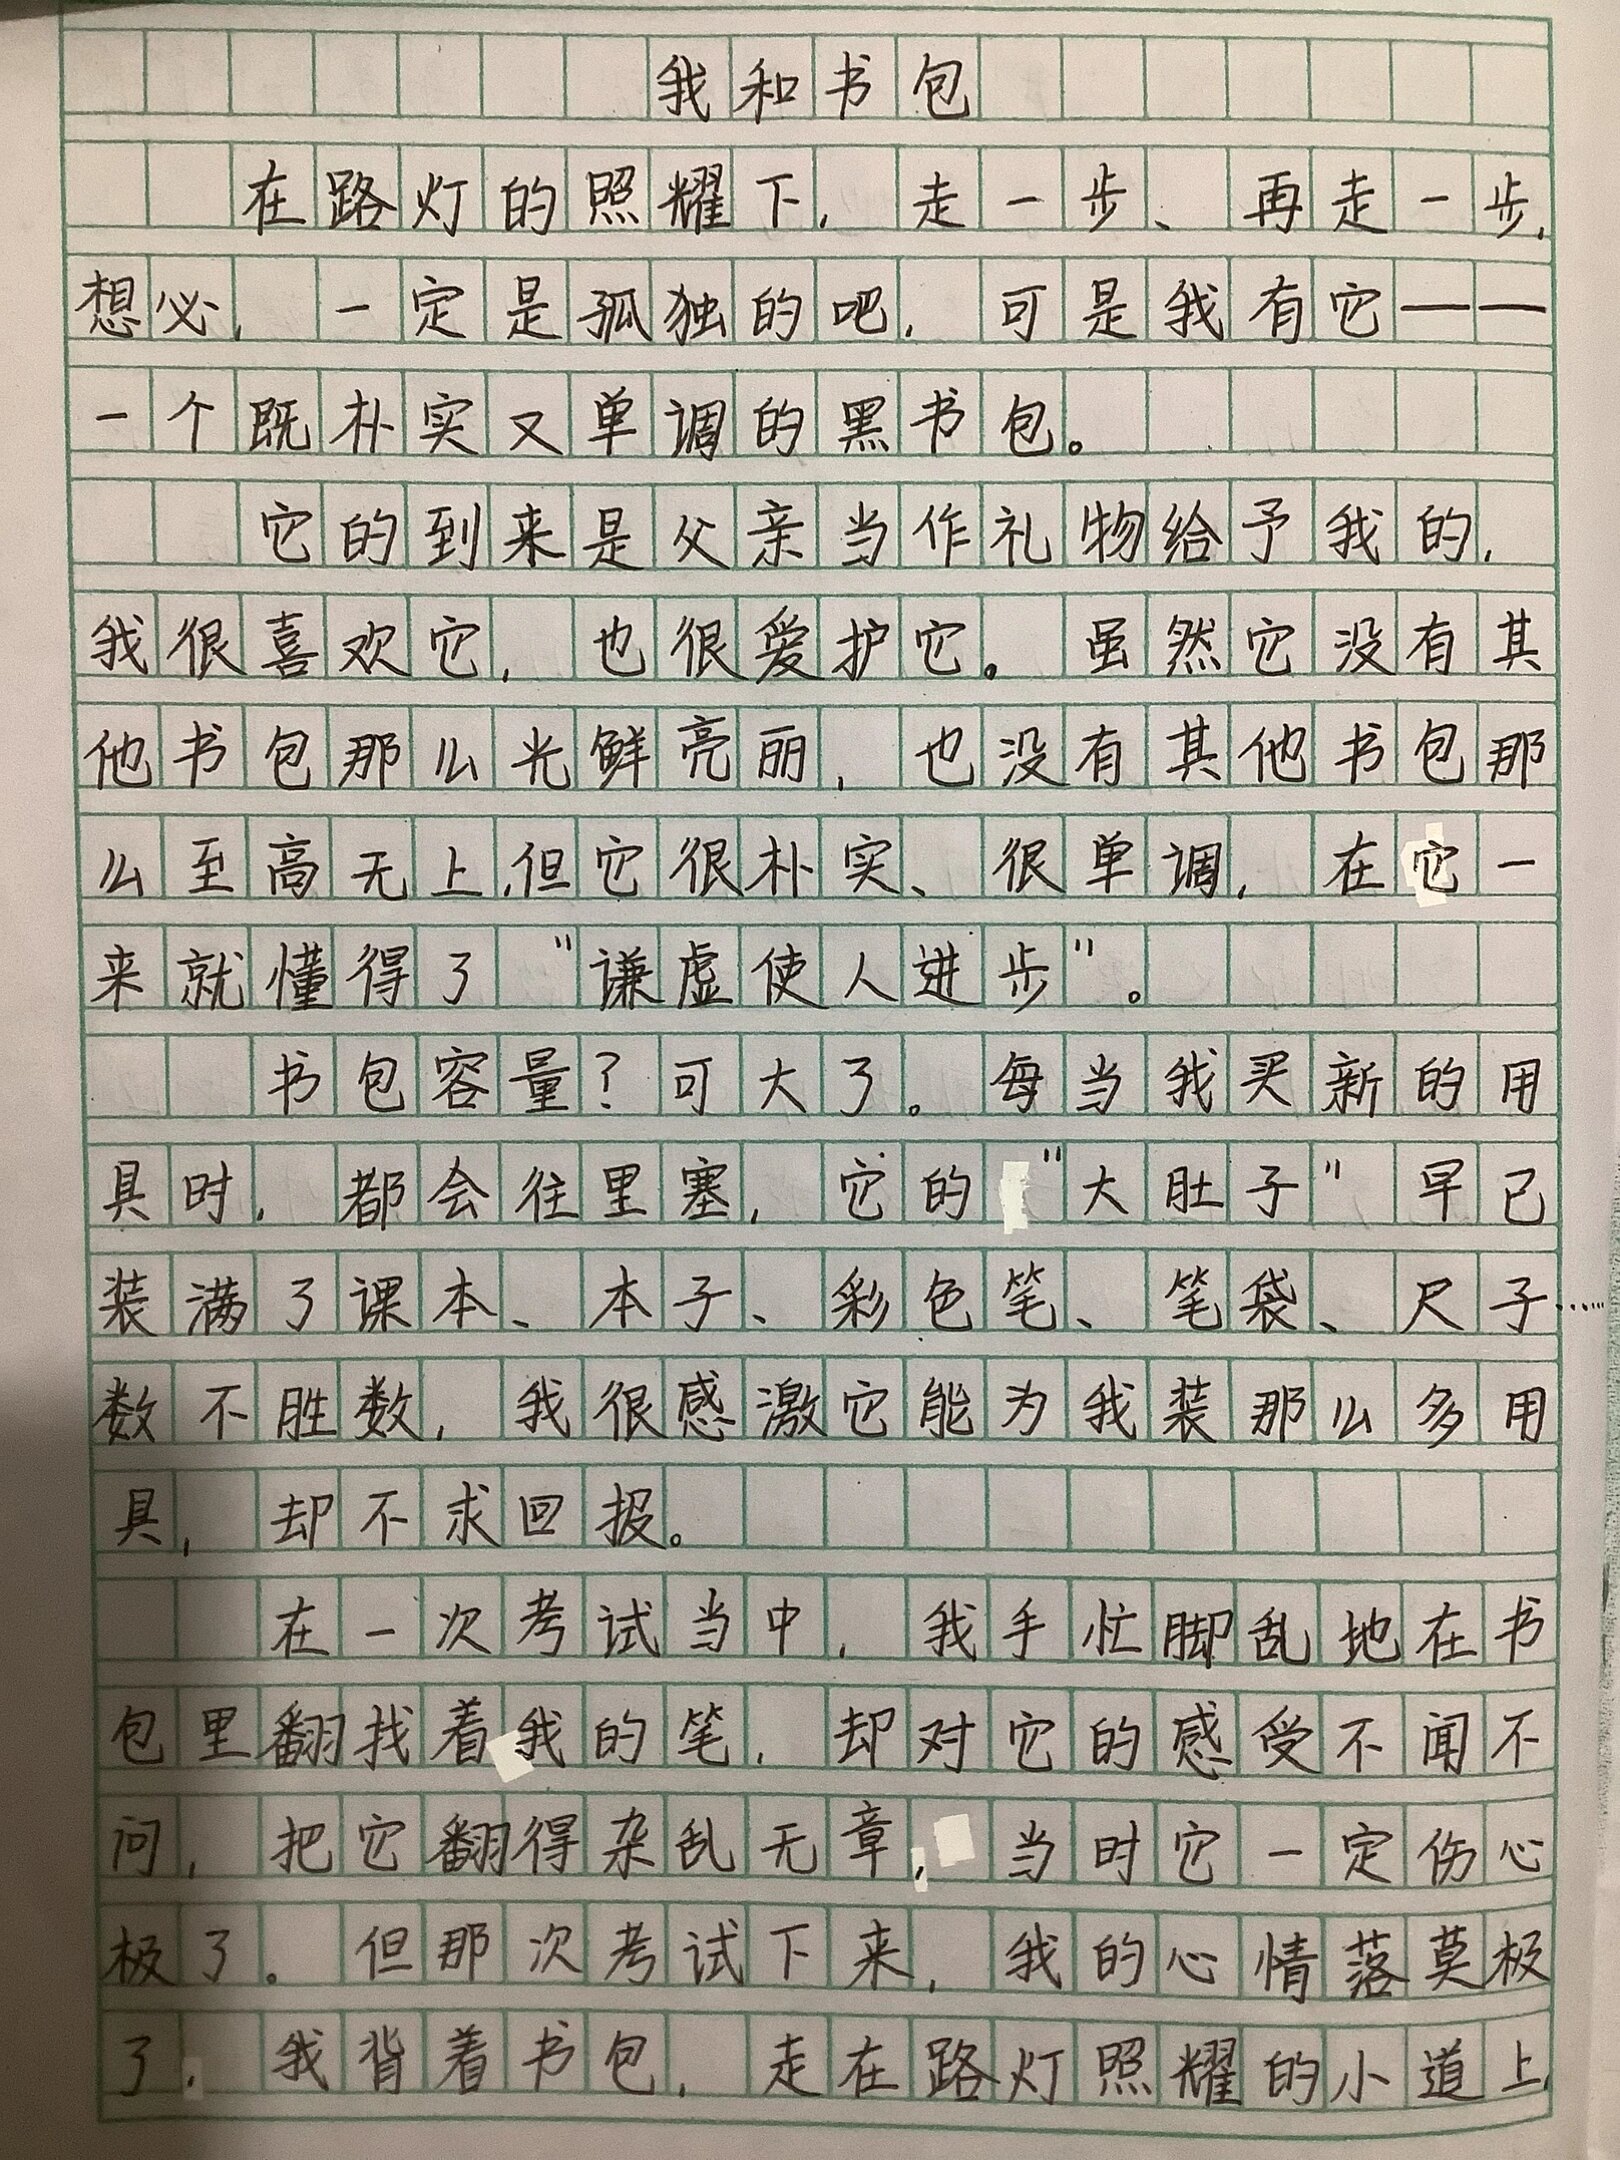 我和书包
在路灯的照耀下，走一步、再走一步，
想必，一定是孤独的吧，可是我有它——
一个既朴实又单调的黑书包。
它的到来是父亲当作礼物给予我的，
我很喜欢它，也很爱护它。虽然它没有其
他书包那么光鲜亮丽，也没有其他书包那
么至高无上，但它很朴实、很单调，在它一
来就懂得了“谦虚使人进步”。
书包容量？可大了。每当我买新的用
具时，都会往里塞，它的“大肚子”早已
装满了课本、本子、彩色笔、笔袋、尺子……
数不胜数，我很感激它能为我装那么多用
具，却不求回报。
在一次考试当中，我手忙脚乱地在书
包里翻找着我的笔，却对它的感受不闻不
问，把它翻得杂乱无章，当时它一定伤心
极了。但那次考试下来，我的心情落莫极
了，我背着书包，走在路灯照耀的小道上，